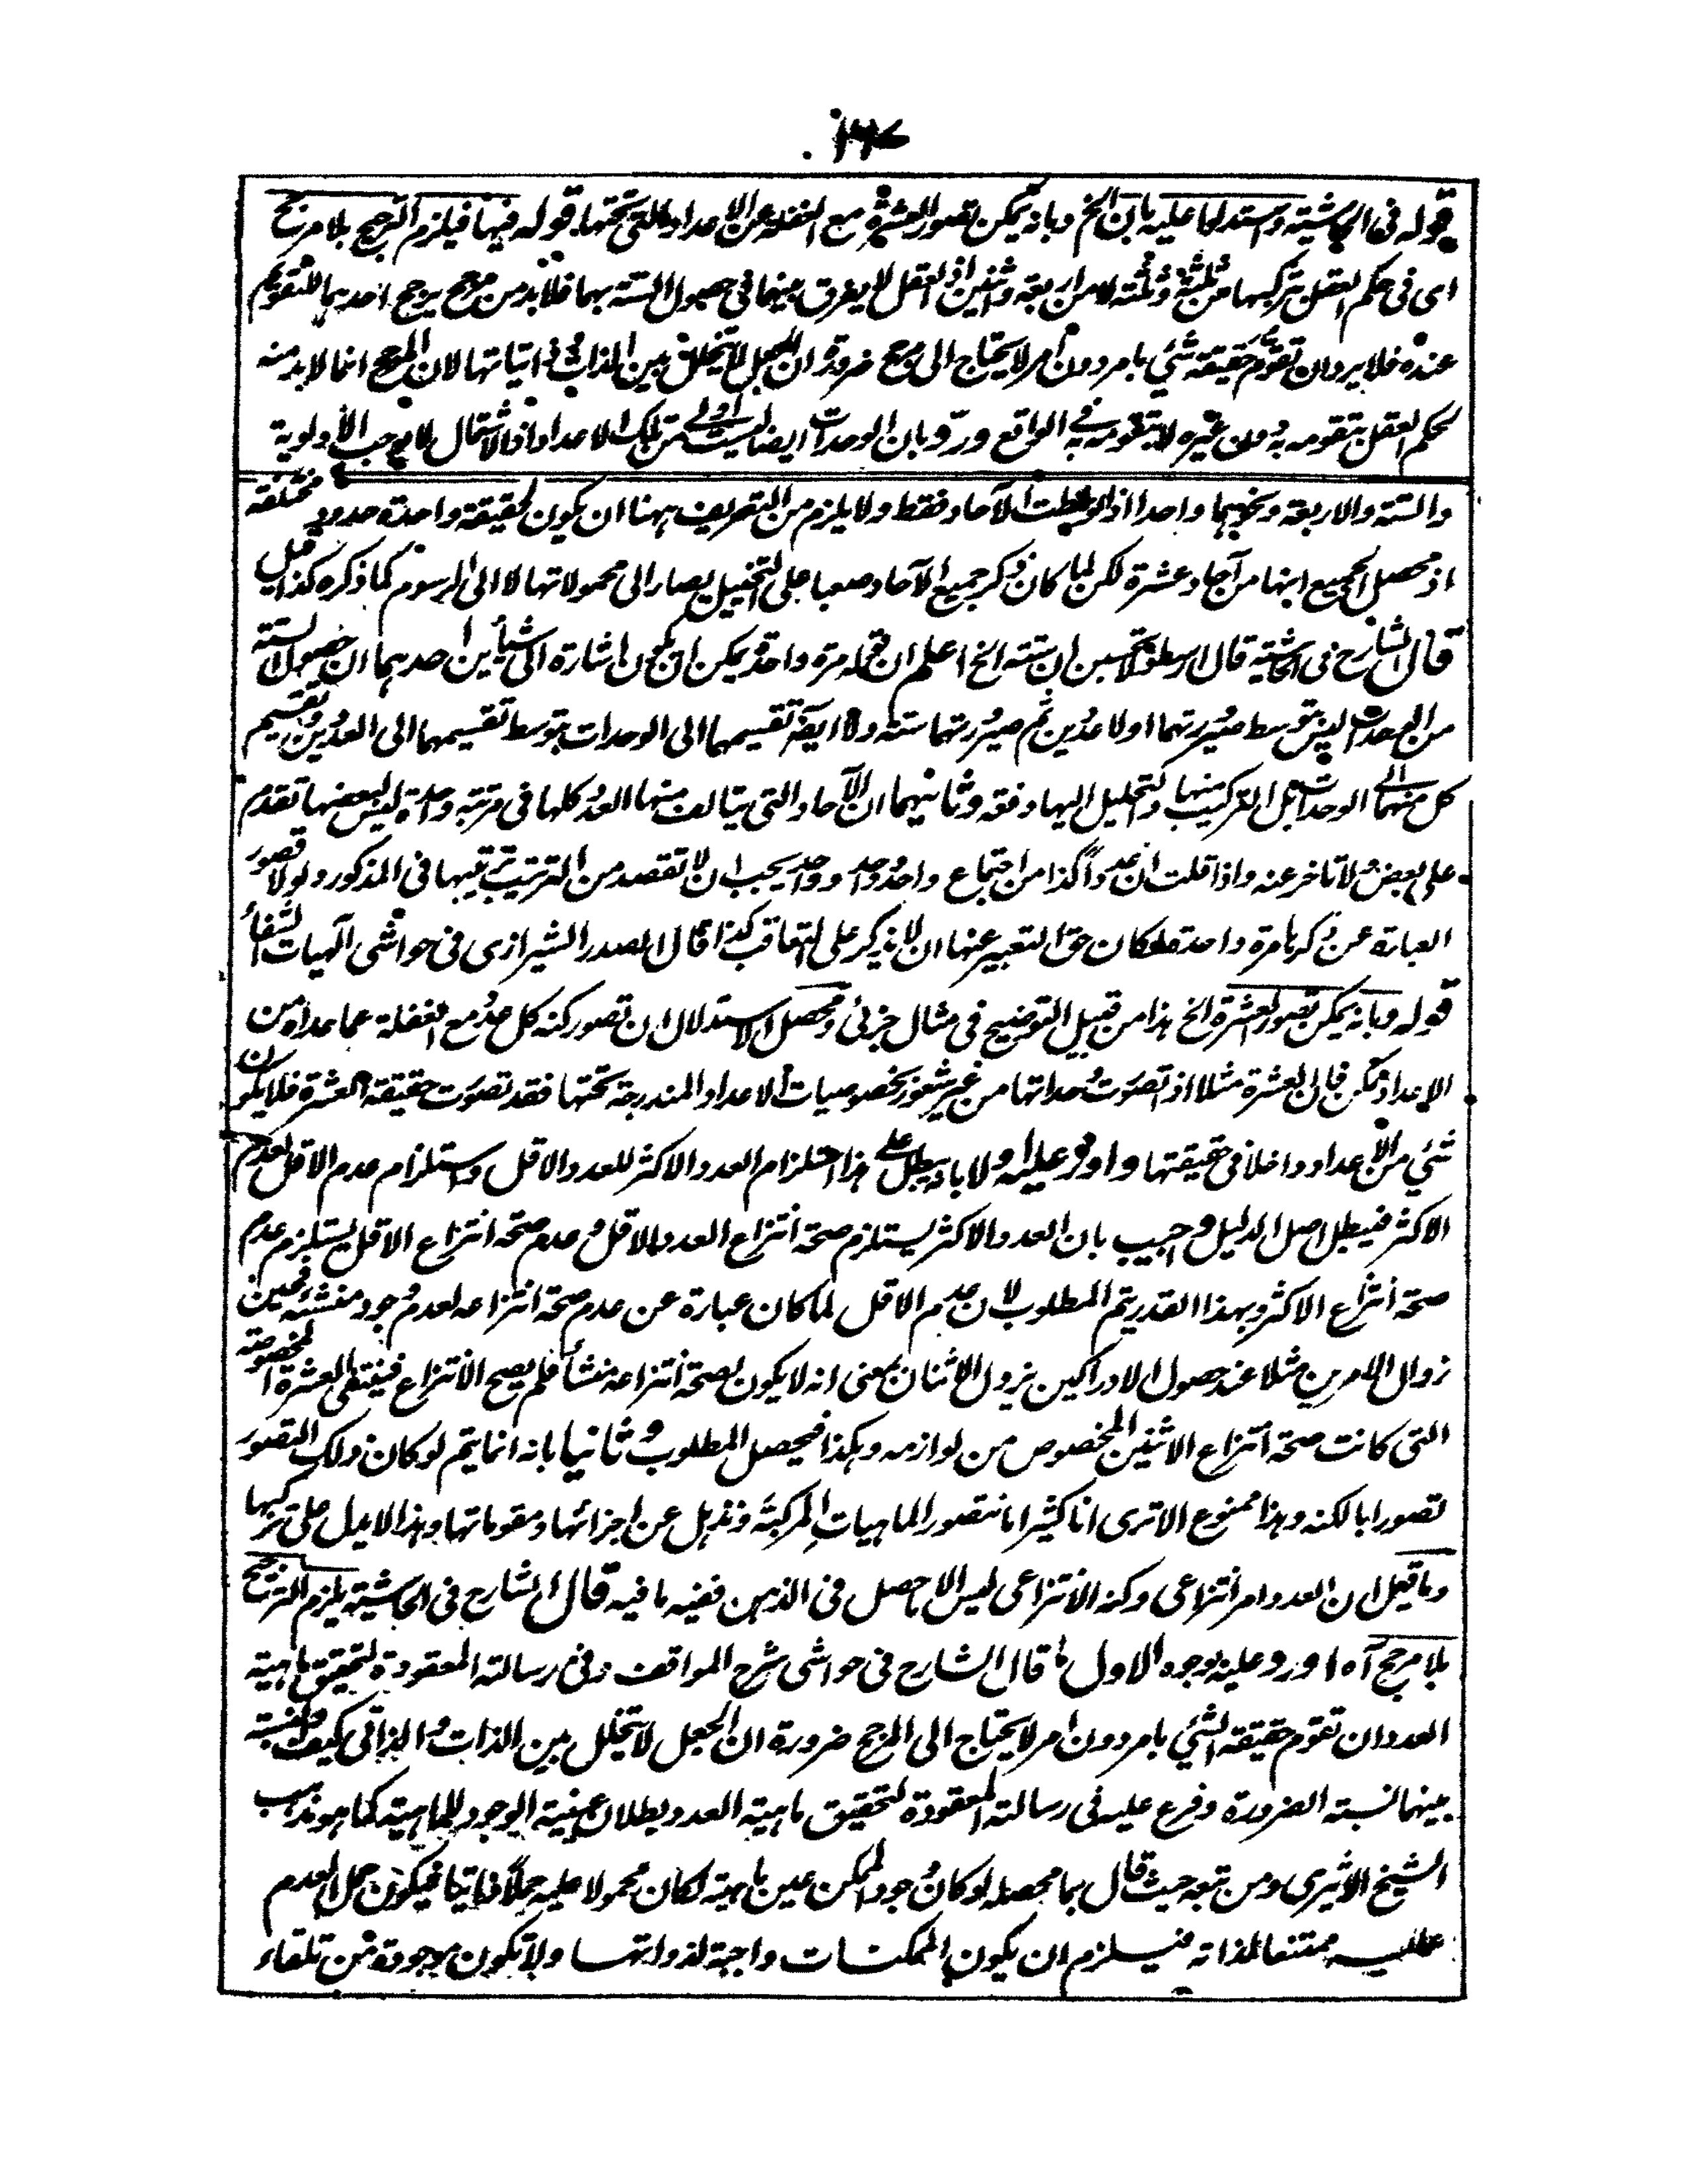 ١٢٧
قوله فى الحاشية واستدلوا عليه بان الخ وبانه يمكن تصور العشرة مع الغفلة عن الاعداد التى تحتها قوله فيها فيلزم الترجيح بلا مرجح
اى فى حكم العقل بتركبها من ثلثة وثلثة لا من اربعة واثنين اذ العقل لا يفرق بينهما فى حصول الستة بهما فلا بد من مرجح يرجح احدهما للتقويم
عنده فلا يرد ان تقوم حقيقة شئ بامر دون امر لا يحتاج الى مرجح ضرورة ان الجعل لا يتخلل بين الذات وذاتياتها لان المرجح انما لا بد منه
لحكم العقل بتقومه بدون غيره لا بتقومه به فى الواقع ورد بان الوحدات ايضا ليست اولى من تلك الاعداد اذ الاشتمال لا يوجب الاولوية
والستة والاربعة ونحوهما واحدا اذ الآحاد فقط ولا يلزم من التعريف ههنا ان يكون لحقيقة واحدة حدود مختلفة
اذ محصل الجميع انها من آحاد عشرة لكن لما كان ذكر جميع الآحاد صعبا على التخييل يصار الى محمولاتها لا الى الرسوم كما ذكره كذا قيل
قال الشارح فى الحاشية قال ارسطو لا تحسبن ان ستة الخ اعلم ان قوله مرة واحدة يمكن ان يكون اشارة الى شيأين احدهما ان حصول الستة
من الوحدات ليس بتوسط صيرورتهما اولا عددين ثم صيرورتهما ستة ولا ايضا تقسيمها الى الوحدات بتوسط تقسيمها الى العددين وتقسيم
كل منهما الى الوحدات بل التركيب منها والتحليل اليها دفعة وثانيهما ان الآحاد التى يتالف منها العدد كلها فى مرتبة واحدة ليس لبعضها تقدم
على بعض ولا تاخر عنه واذا قلت ان عددا كذا من اجتماع واحد وواحد وواحد يجب ان لا تقصد من الترتيب ترتيبها فى المذكور ولولا قصور
العبارة عن ذكرها مرة واحدة لكان حق التعبير عنها ان لا يذكر على التعاقب كذا قال الصدر الشيرازى فى حواشى الهيات الشفاء
قوله وبانه يمكن تصور العشرة الخ هذا من قبيل التوضيح فى مثال جزئى ومحصل الاستدلال ان تصور كنه كل عدد مع الغفلة عما عداه من
الاعداد ممكن فان العشرة مثلا اذا تصورت وحداتها من غير شعور بخصوصيات الاعداد المندرجة تحتها فقد تصورت حقيقة العشرة فلا يكون
شئ من الاعداد داخلا فى حقيقتها واورد عليه اولا بانه يبطل على هذا استلزام العدد الاكثر للعدد الاقل واستلزام عدم الاقل لعدم
الاكثر فيبطل اصل الدليل واجيب بان العدد الاكثر يستلزم صحة انتزاع العدد الاقل وعدم صحة انتزاع الاقل يستلزم عدم
صحة انتزاع الاكثر وبهذا القدر يتم المطلوب لان عدم الاقل لما كان عبارة عن عدم صحة انتزاعه لعدم وجود منشئه فحين
زوال الامرين مثلا عند حصول الادراكين يزول الاثنان بمعنى انه لا يكون لصحة انتزاعه منشأ فلم يصح الانتزاع فينتفى العشرة المخصوصة
التى كانت صحة انتزاع الاثنين المخصوص من لوازمه وهكذا فيحصل المطلوب وثانيا بانه انما يتم لو كان ذلك التصور
تصورا بالكنه وهذا ممنوع الا ترى انا كثيرا ما نتصور الماهيات المركبة ونذهل عن اجزائها ومقوماتها وهذا لا يدل على تركبها
وما قيل ان العدد امر انتزاعى وكنه الانتزاعى ليس الا ما حصل فى الذهن ففيه ما فيه قال الشارح فى الحاشية يلزم الترجيح
بلا مرجح آه اورد عليه بوجوه الاول ما قال الشارح فى حواشى شرح المواقف وفى رسالته المعقودة لتحقيق ماهية
العدد ان تقوم حقيقة الشئ بامر دون امر لا يحتاج الى المرجح ضرورة ان الجعل لا يتخلل بين الذات والذاتى كيف والنسبة
بينهما نسبة الضرورة وفرع عليه فى رسالته المعقودة لتحقيق ماهية العدد بطلان عينية الوجود للماهية كما هو مذهب
الشيخ الاشعرى ومن تبعه حيث قال بما محصله لو كان وجود الممكن عين ماهيته لكان محمولا عليه حملا ذاتيا فيكون حمل العدم
عليه ممتنعا لذاته فيلزم ان يكون الممكنات واجبة لذواتها ولا تكون موجودة من تلقاء